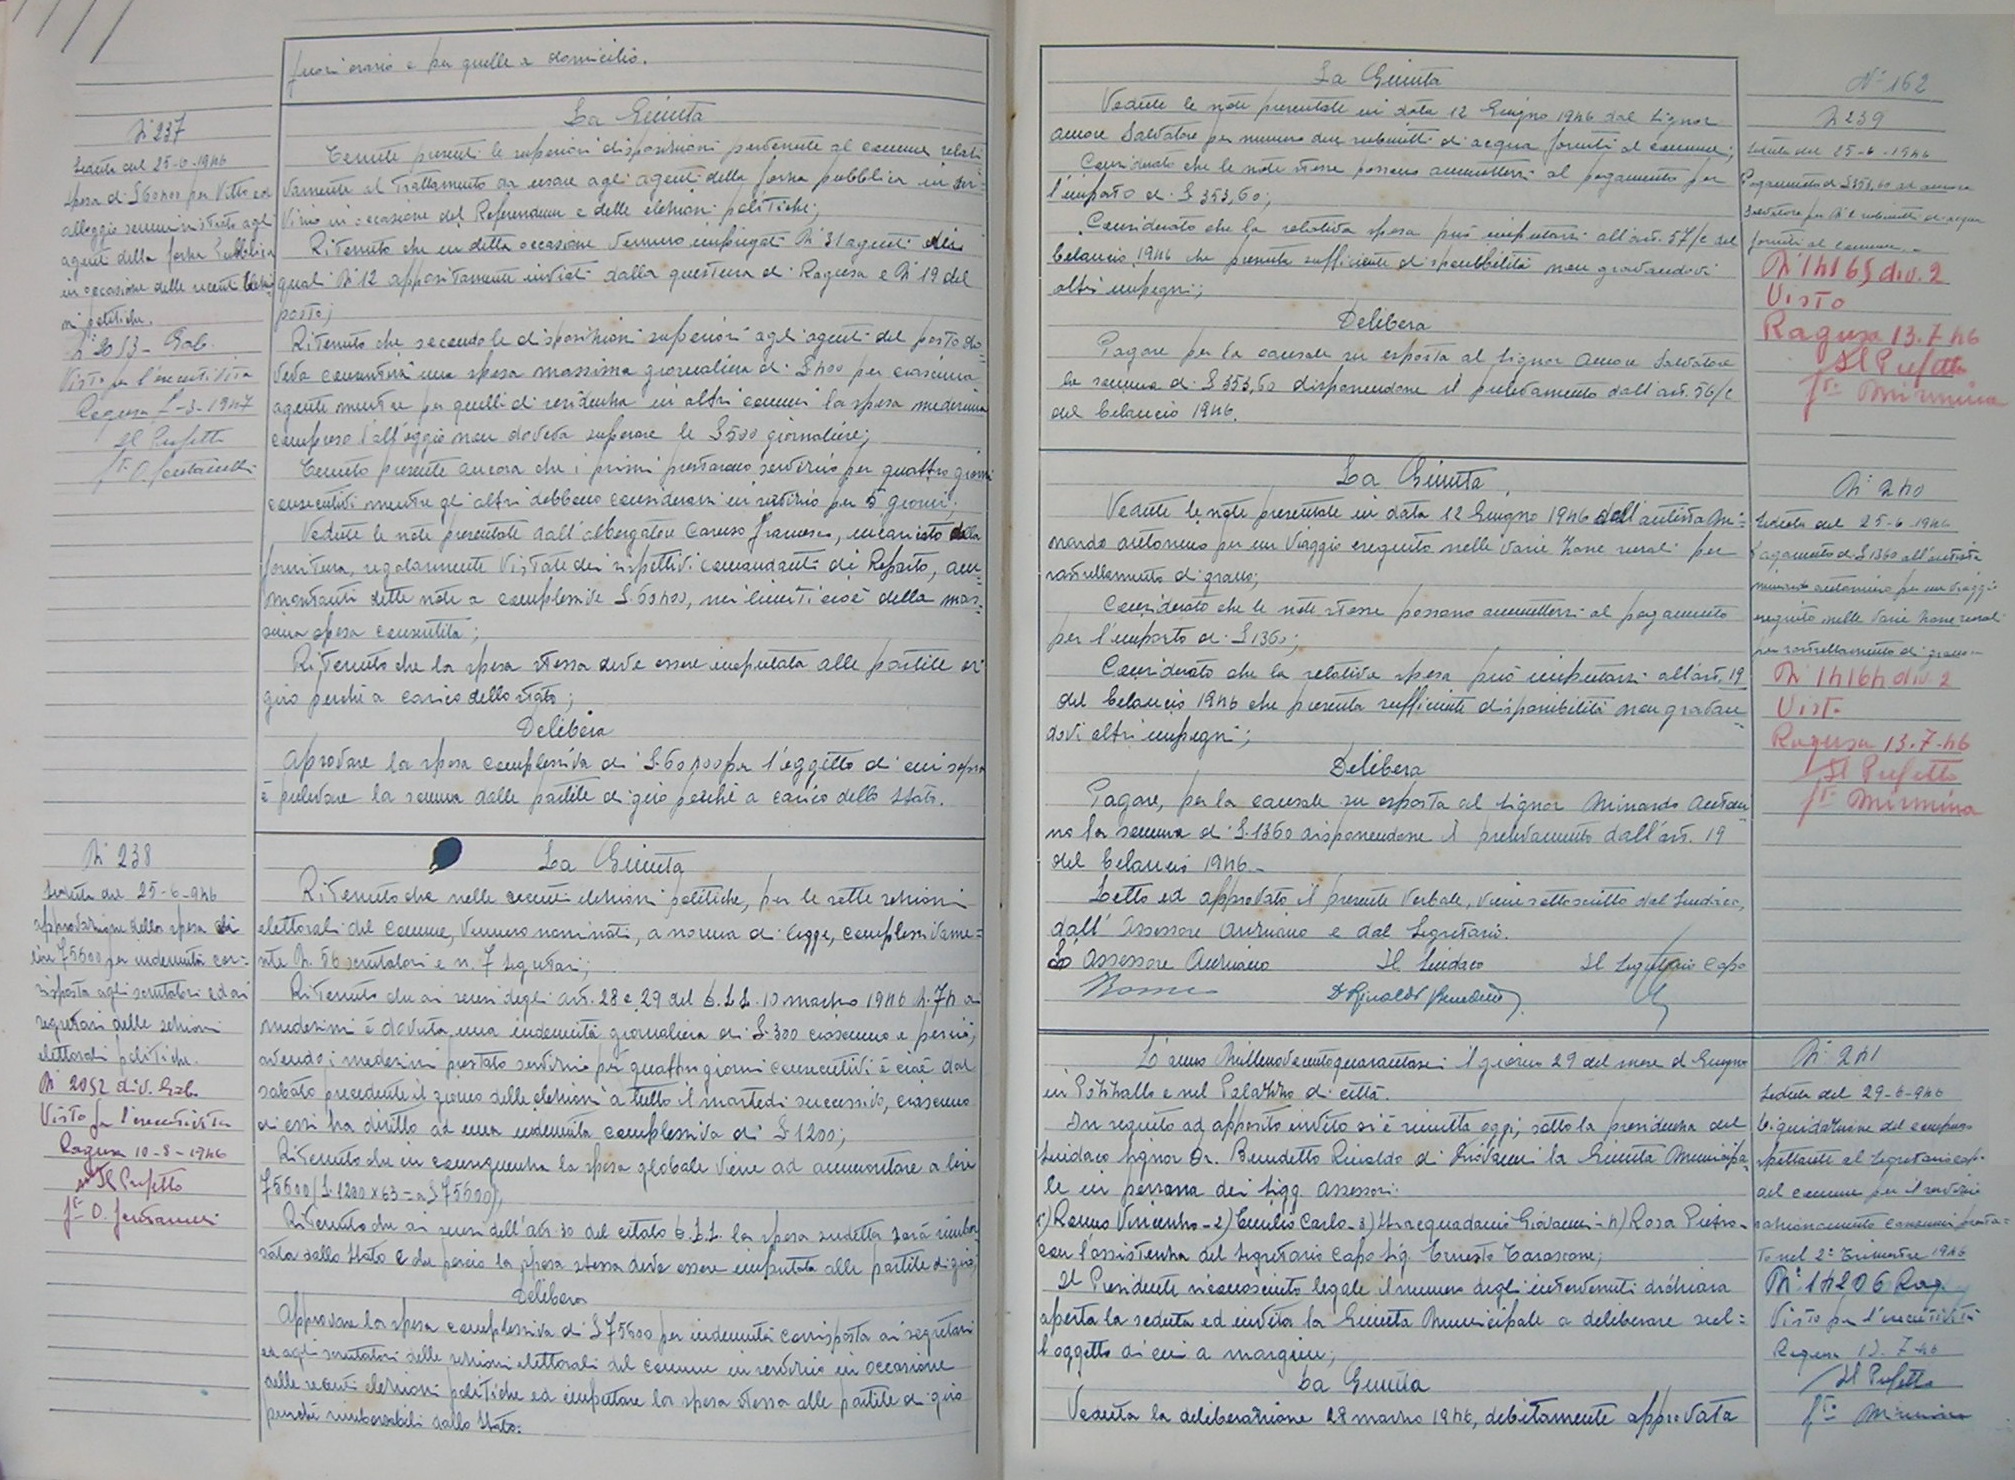 fuori orario e per quelle a domicilio.
N. 237
Seduta del 25-6-1946
Spesa di £ 60400 per Vitto ed
alloggio somministrato agli
agenti della forza Pubblica
in occasione delle recenti elezio
ni politiche.
N. 2053 - Gab.
Visto per l'esecutività
Ragusa 1-3-1947
Il Prefetto
La Giunta
Tenute presenti le superiori disposizioni pervenute al comune relati
vamente al trattamento da usare agli agenti della forza pubblica in ser-
vizio in occasione del Referendum e delle elezioni politiche;
Ritenuto che in detta occasione vennero impiegati N. 31 agenti dei
quali N. 12 appositamente inviati dalla questura di Ragusa e N. 19 del
posto;
Ritenuto che secondo le disposizioni superiori agli agenti del posto do-
veva consentirsi una spesa massima giornaliera di £ 400 per ciascuno
agente mentre per quelli di residenza in altri comuni la spesa medesima
compreso l'alloggio non doveva superare le £ 500 giornaliere;
Tenuto presente ancora che i primi prestarono servizio per quattro giorni
consecutivi mentre gli altri debbono considerarsi in servizio per 5 giorni;
Vedute le note presentate dall'albergatore Caruso Francesco, incaricato della
fornitura, regolarmente vistate dai rispettivi comandanti di Reparto, am-
montanti dette note a complessive £. 60400, nei limiti cioè della mas-
sima spesa consentita;
Ritenuto che la spesa stessa deve essere imputata alle partite di
giro perché a carico dello Stato;
Delibera
Aprovare la spesa complessiva di £. 60400 per l'oggetto di cui sopra
e prelevare la somma dalle partite di giro perché a carico dello Stato.
N. 238
Seduta del 25-6-946
approvazione della spesa di
lire 75600 per indennità cor-
risposta agli scrutatori ed ai
segretari delle sezioni
elettorali politiche.
N. 2052 div. Gab.
Visto per l'esecutività
Ragusa 10-8-1946
Il Prefetto
La Giunta
Ritenuto che nelle recenti elezioni politiche, per le sette sezioni
elettorali del comune, vennero nominati, a norma di legge, complessivame-
nte N. 56 scrutatori e n. 7 segretari;
Ritenuto che ai sensi degli art. 28 e 29 del D.L.L. 10 marzo 1946 N. 74 ai
medesimi è dovuta una indennità giornaliera di £. 300 ciascuno e perciò,
avendo i medesimi prestato servizio per quattro giorni consecutivi e cioè dal
sabato precedente il giorno delle elezioni a tutto il martedì successivo, ciascuno
di essi ha diritto ad una indennità complessiva di £ 1200;
Ritenuto che in conseguenza la spesa globale viene ad ammontare a lire
75600 (£. 1200 x 63 = a £ 75600);
Ritenuto che ai sensi dell'art. 30 del citato D.L.L. la spesa suddetta sarà rimbor
sata dallo Stato e che perciò la spesa stessa deve essere imputata alle partite di giro;
Delibera
Approvare la spesa complessiva di £ 75600 per indennità corrisposta ai segretari
ed agli scrutatori delle sezioni elettorali del comune in servizio in occasione
delle recenti elezioni politiche ed imputare la spesa stessa alle partite di giro
perché rimborsabili dallo Stato.
N. 162
La Giunta
Vedute le note presentate in data 12 Giugno 1946 dal Signor
Amore Salvatore per numero due rubinetti di acqua forniti al comune;
Considerato che le note stesse possono ammettersi al pagamento per
l'importo di £ 353,60;
Considerato che la relativa spesa può imputarsi all'art. 57/c del
bilancio 1946 che presenta sufficiente disponibilità non gravandovi
altri impegni;
Delibera
Pagare per la causale su esposta al Signor Amore Salvatore
la somma di £ 353,60 disponendone il prelevamento dall'art. 56/c
del bilancio 1946.
N. 239
Seduta del 25-6-1946
Pagamento di £ 353,60 ad Amore
Salvatore per N. 2 rubinetti di acqua
forniti al comune.
N. 14165 div. 2
Visto
Ragusa 13.7.46
Il Prefetto
fto Mirmina
La Giunta
Vedute le note presentate in data 12 Giugno 1946 dall'autista Mi-
nardo Antonino per un viaggio eseguito nelle varie zone rurali per
rastrellamento di grano;
Considerato che le note stesse possono ammettersi al pagamento
per l'importo di £ 1360;
Considerato che la relativa spesa può imputarsi all'art. 19
del bilancio 1946 che presenta sufficiente disponibilità non gravan-
dovi altri impegni;
Delibera
Pagare, per la causale su esposta al Signor Minardo Antoni
no la somma di £. 1360 disponendone il prelevamento dall'art. 19
del bilancio 1946.
N. 240
Seduta del 25-6-1946
Pagamento di £ 1360 all'autista
Minardo Antonino per un viaggio
eseguito nelle varie zone rurali
per rastrellamento di grano.
N. 14164 div. 2
Visto
Ragusa 13.7.46
Il Prefetto
fto Mirmina
Letto ed approvato il presente verbale, viene sottoscritto dal Sindaco,
dall'Assessore Anziano e dal Segretario.
Lo Assessore Anziano Il Sindaco Il Segretario Capo
Romeo Dr Rinaldo Benedetto
L'anno Millenovecentoquarantasei il giorno 29 del mese di Giugno
in Pozzallo e nel Palazzo di città.
In seguito ad apposito invito si è riunita oggi, sotto la presidenza del
Sindaco Signor Dr. Benedetto Rinaldo di Giovanni la Giunta Municipa-
le in persona dei Sigg. Assessori:
1) Romeo Vincenzo - 2) Emilio Carlo - 3) Stracquadanio Giovanni - 4) Rosa Pietro -
con l'assistenza del Segretario Capo Sig. Ernesto Tarascone;
Il Presidente riconosciuto legale il numero degli intervenuti dichiara
aperta la seduta ed invita la Giunta Municipale a deliberare sul-
l'oggetto di cui a margine;
La Giunta
Veduta la deliberazione 28 marzo 1946, debitamente approvata
N. 241
Seduta del 29-6-946
Liquidazione del compenso
spettante al Segretario capo
del comune per il servizio
razionamento consumi presta-
to nel 2° Trimestre 1946
N. 14206 Rag.
Visto per l'esecutività
Ragusa 12.7.46
Il Prefetto
fto Mirmina